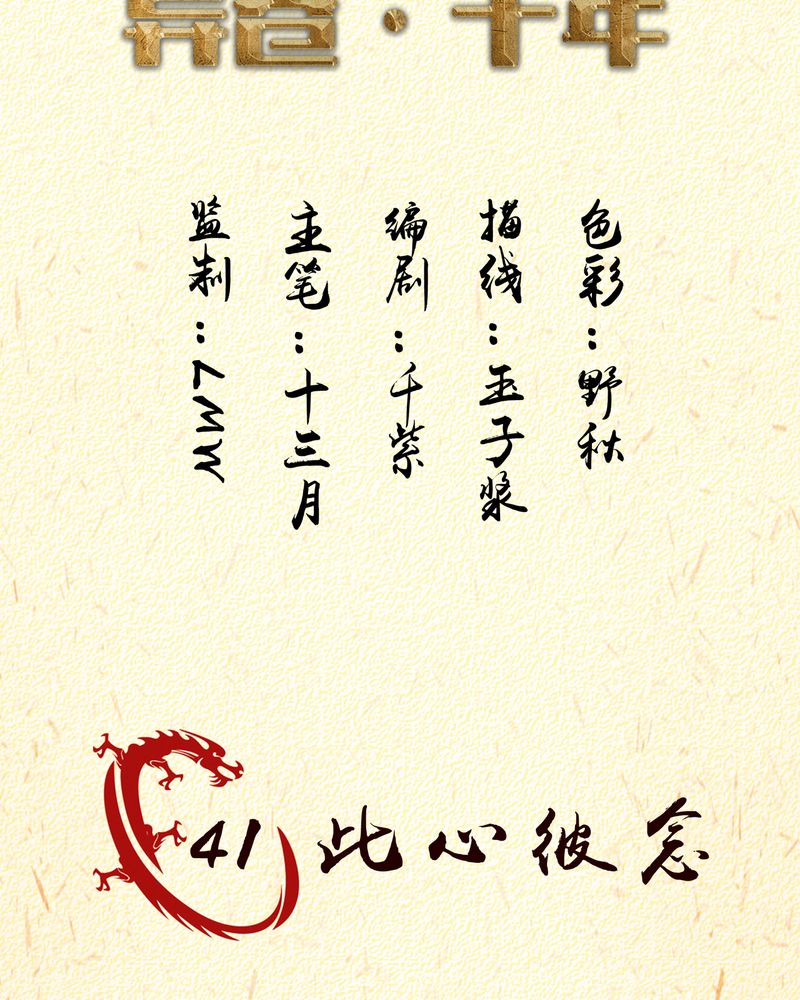 千年
监制：
主笔：十三月
编剧：千紫
描线：玉子浆
色彩：野秋
41 此心彼念